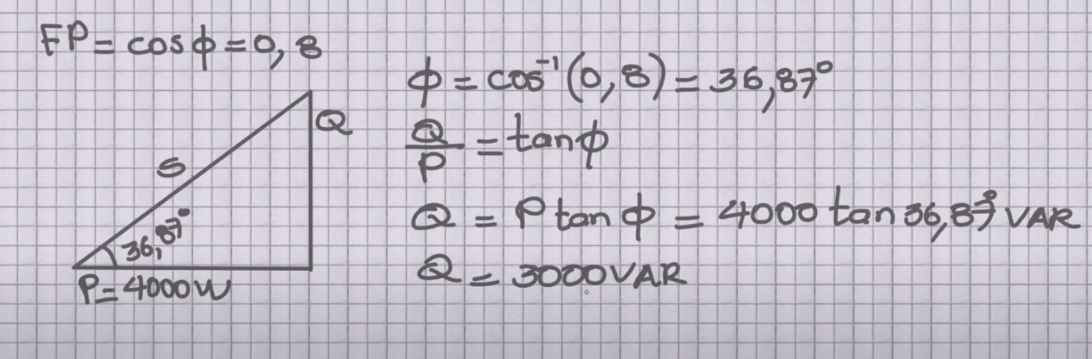 FP = cos ϕ = 0,8
Q
S
36,87°
P = 4000W
ϕ = cos⁻¹(0,8) = 36,87°
Q/P = tanϕ
Q = P tan ϕ = 4000 tan 36,87° VAR
Q = 3000VAR